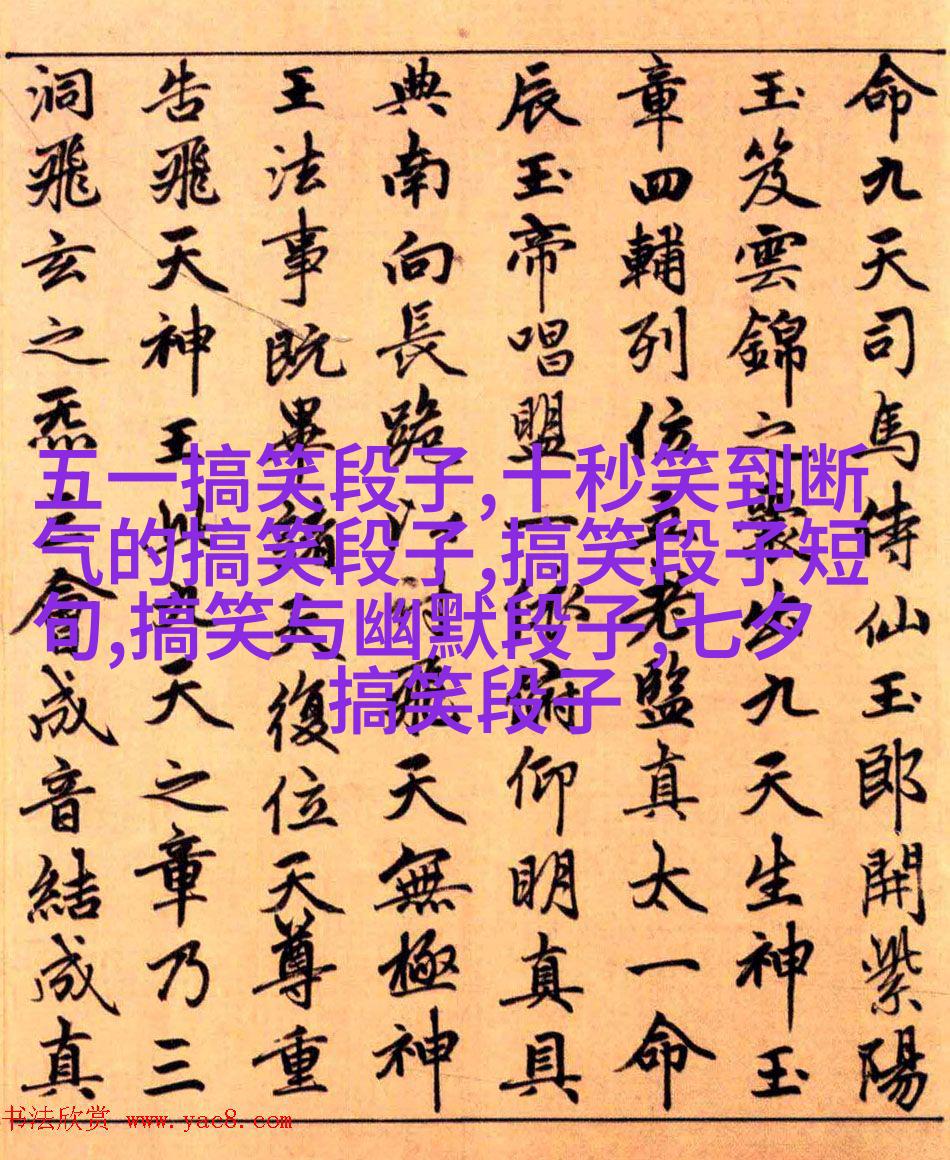 命九天司馬侍仙玉郎開紫陽
玉笈雲錦之囊出九天生神玉
章四輔列位五老監真太一命
辰玉帝唱盟一仰明真具
典南向長跪以天無極神
王法事既畢諸天復位天尊重
告飛天神王此天之章乃三
洞飛玄之炁三會成音結成真
五一搞笑段子,十秒笑到断
气的搞笑段子,搞笑段子短
句,搞笑与幽默段子,七夕
搞笑段子
书法欣赏 www.yac8.com